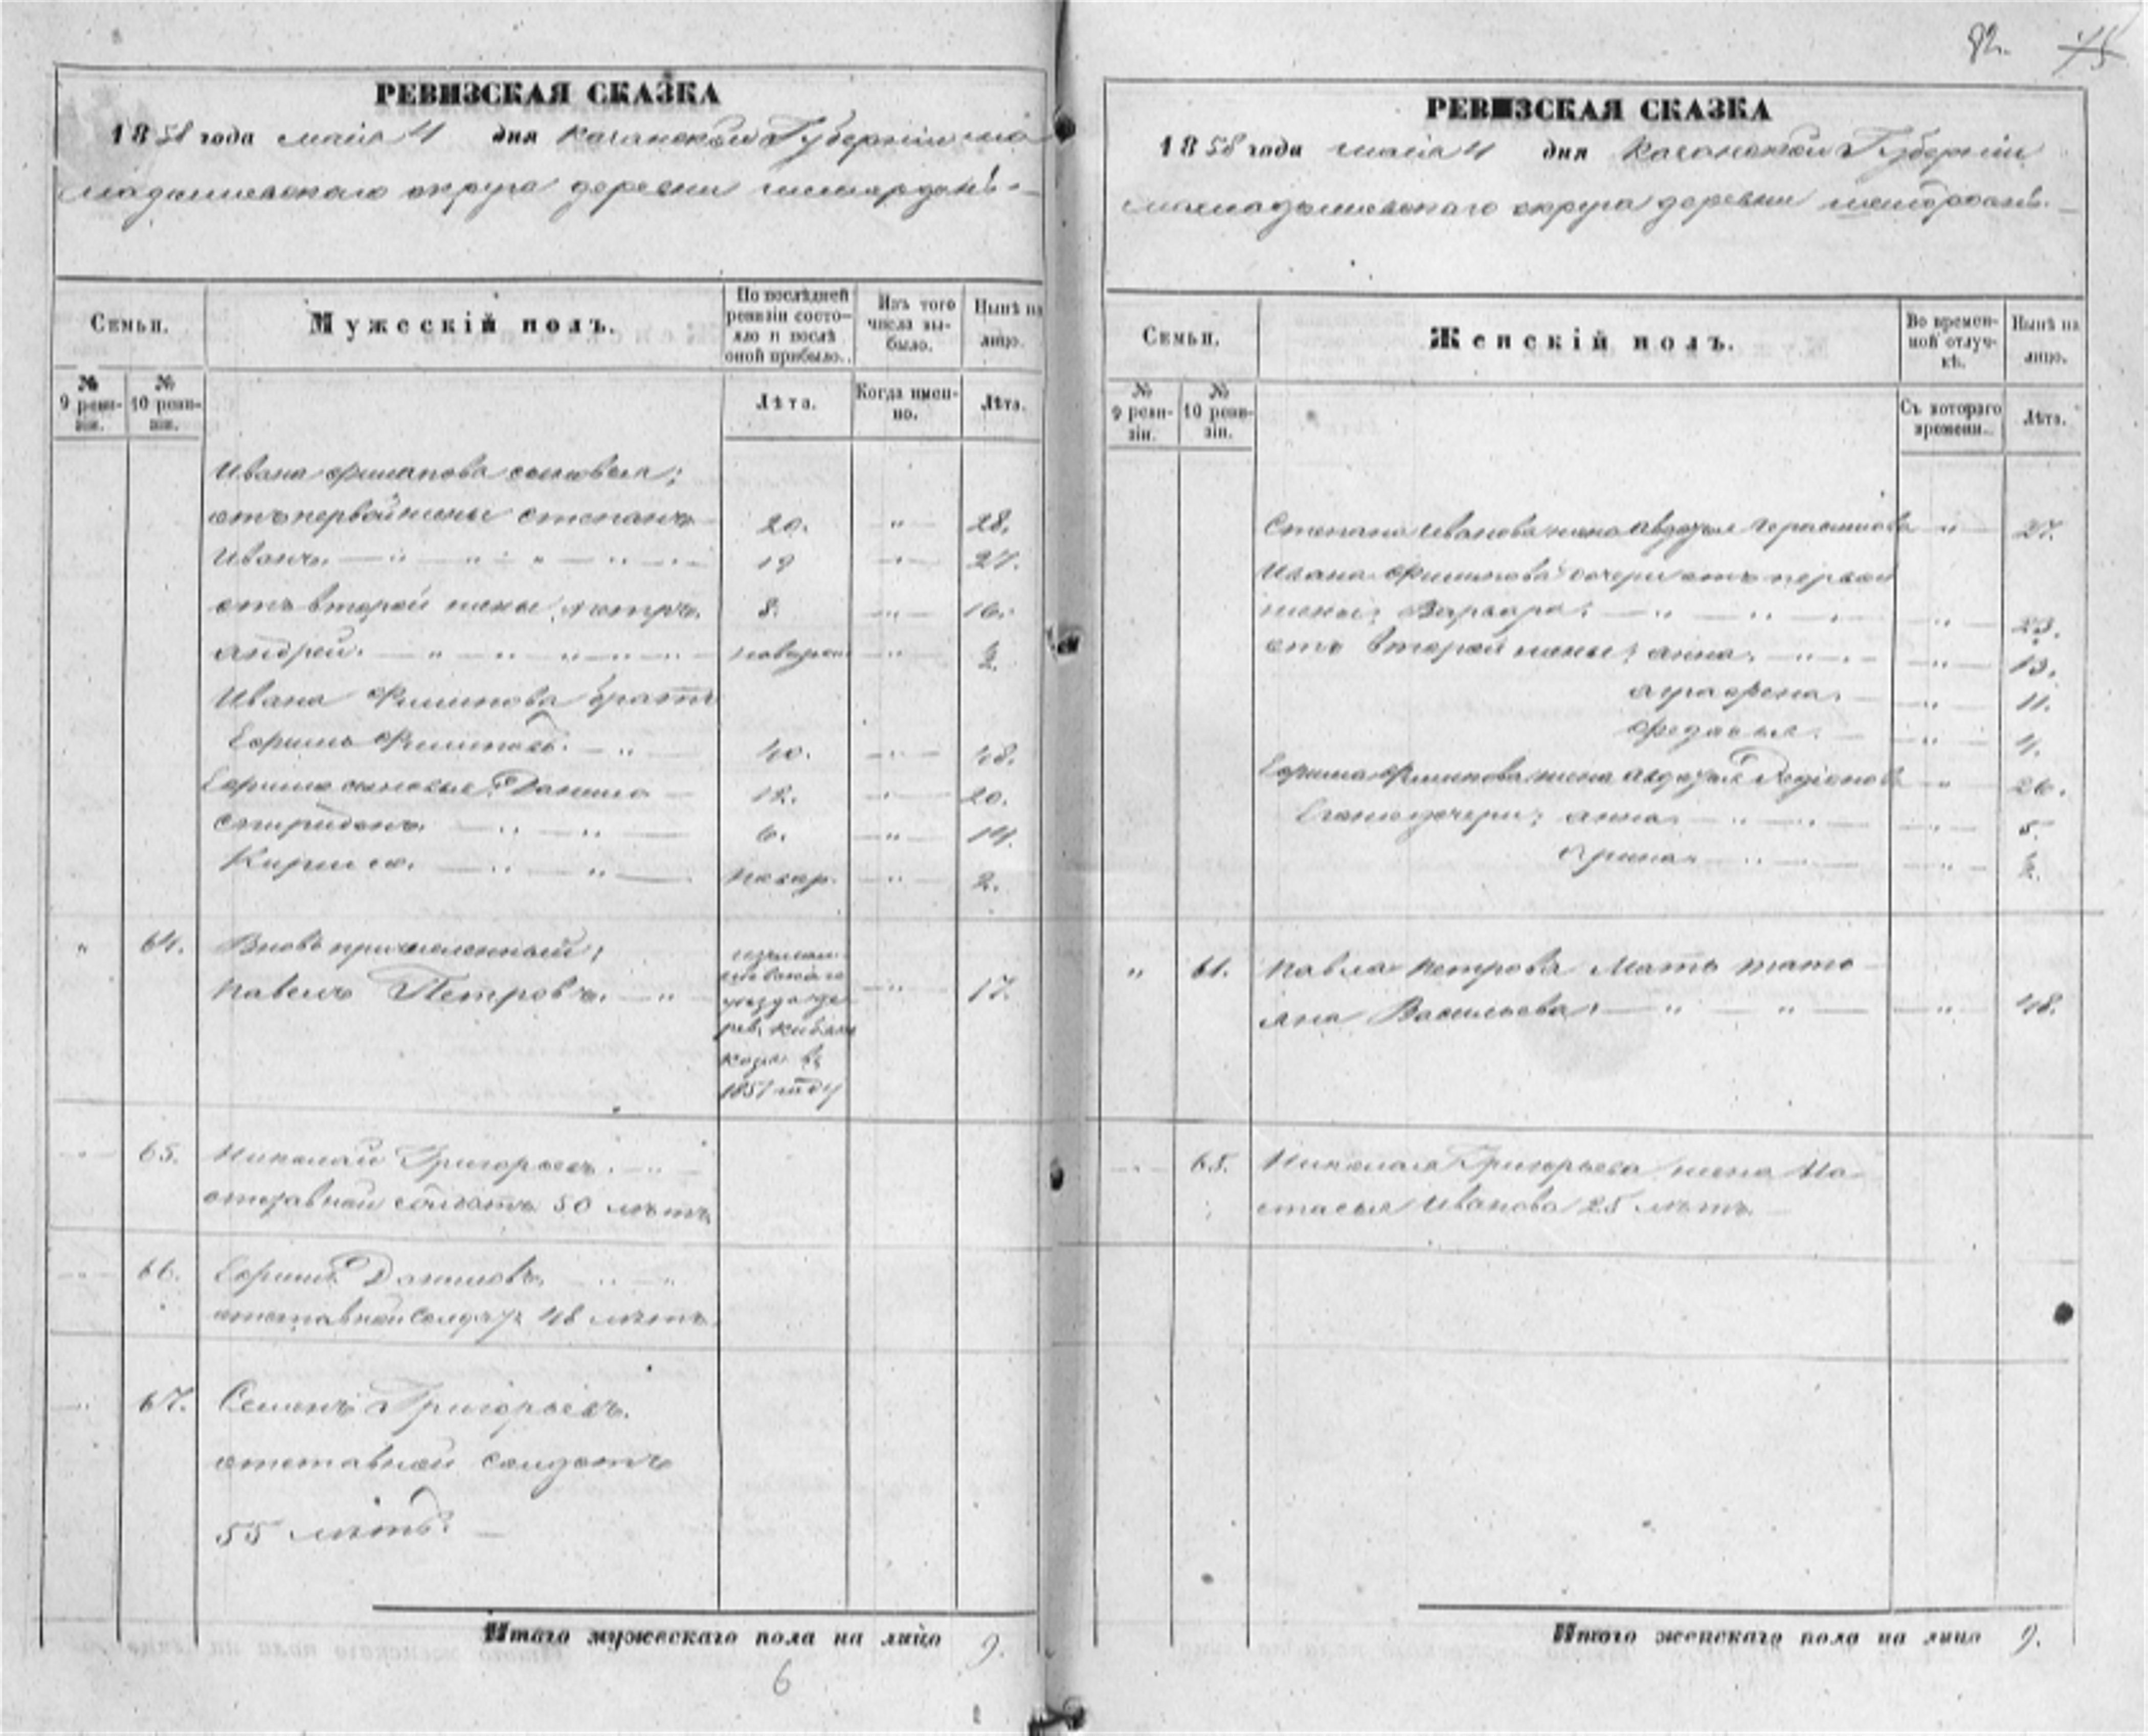 82. 75
РЕВИЗСКАЯ СКАЗКА
1858 года мая 4 дня Казанской Губернии ма
мадышевскаго округа деревни
Семьи.
Мужескій полъ.
По послѣдней ревизіи состояло и послѣ оной прибыло.
Изъ того числа выбыло.
Нынѣ на лицо.
№ 9 ревизіи.
№ 10 ревизіи.
Лѣта.
Когда именно.
Лѣта.
Ивана Филипова сыновья;
отъ первой жены Степанъ 20. " 28.
Иванъ. — " — " — " — 19 " 27.
отъ второй жены, Петръ. 8. " 16.
Андрей. — " — " — " —
Ивана Филипова братъ
Ефимъ Филиповъ. — " — 40. " 48.
Ефима сыновья: Данило — 12. " 20.
Спиридонъ. — " — " — 6. " 14.
Кирило. — " — " — новор. " 2.
" 64. Вновь причисленный;
Павелъ Петровъ. — " " 17.
уѣзда де
рев.
въ
1857 году
" 65. Николай Григорьевъ. — " —
отставной солдатъ 50 лѣтъ
" 66. Ефимъ Даниловъ. — " — "
отставной солдатъ 48 лѣтъ.
" 67. Семенъ Григорьевъ.
отставной солдатъ
55 лѣтъ. —
Итого мужескаго пола на лицо 9.
6
РЕВИЗСКАЯ СКАЗКА
1858 года мая 4 дня Казанской Губернии
мамадышевскаго округа деревни
Семьи.
Женскій полъ.
Во временной отлучкѣ.
Нынѣ на лицо.
№ 9 ревизіи.
№ 10 ревизіи.
Съ котораго времени.
Лѣта.
Степана Иванова жена Авдотья Герасимова " 27.
Ивана Филипова дочери отъ первой
жены; Варвара. — " — " — " 23.
отъ второй жены; Анна. — " — " 13.
Аграфена. — " 11.
Федосья. — " 4.
Ефима Филипова жена Авдотья Родіонова " 26.
Его же дочери; Анна — " — " 5.
Ирина — " — "
" 64. Павла Петрова Мать Татъ
яна Васильева; — " — " — " 48.
" 65. Николая Григорьева жена На
стасья Иванова 25 лѣтъ. —
Итого женскаго пола на лицо 9.